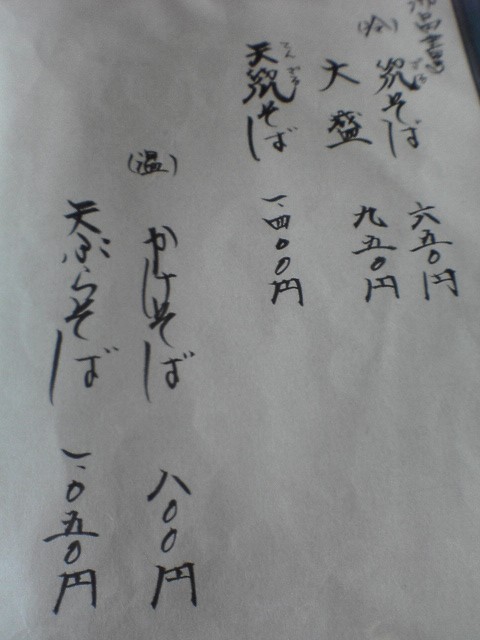 御品書
(冷)
笊そば 六五〇円
ざる
大盛 九五〇円
天笊そば 一、四〇〇円
てんざる
(温)
かけそば 八〇〇円
天ぷらそば 一、〇五〇円